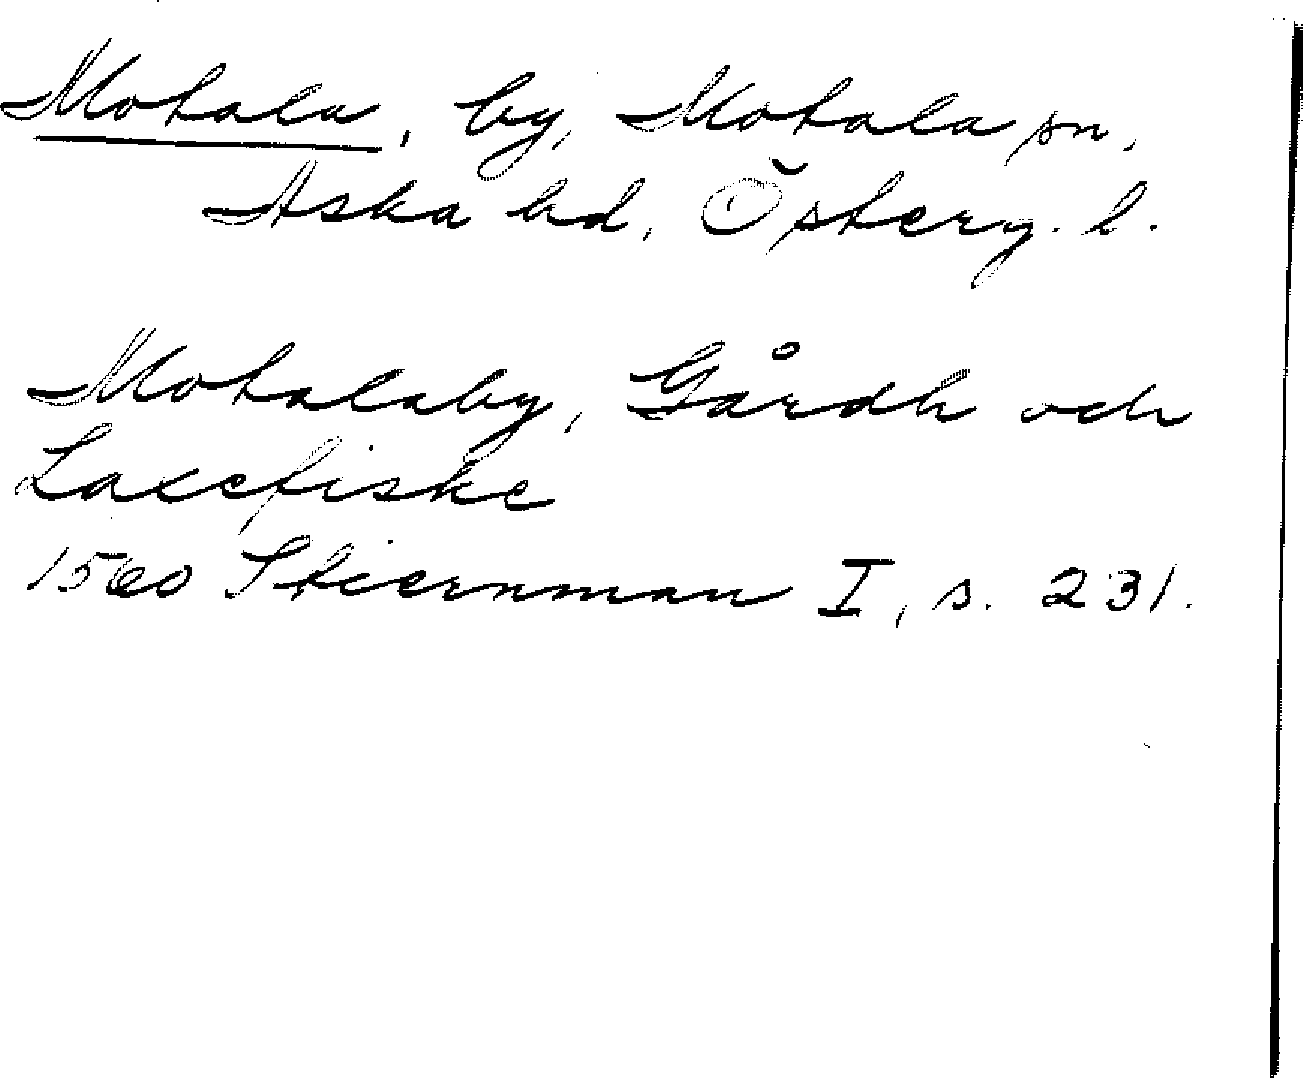 Motala, by, Motala sn,
Aska hd, Österg. l.
Motalaby, Gårdh och
Laxefiske
1560 Stiernman I, s. 231.